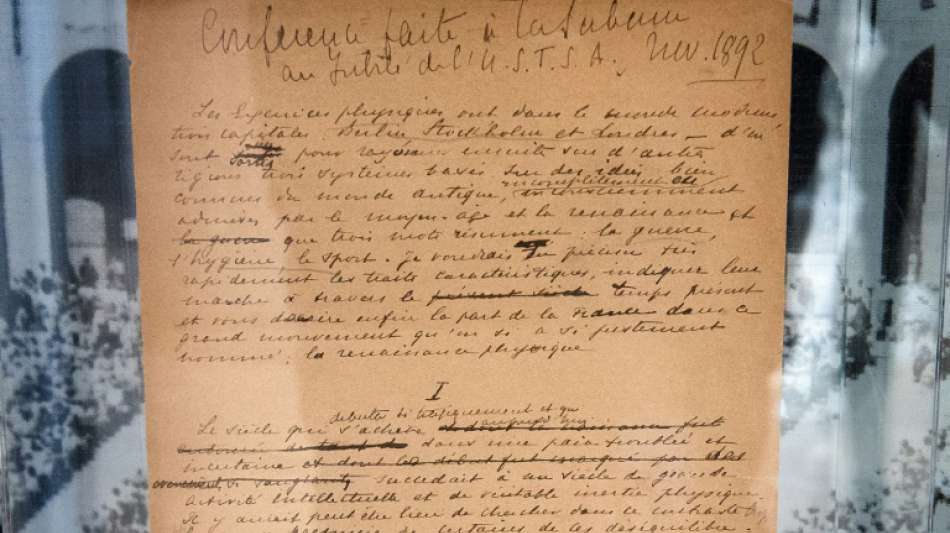 Conférence faite à la Sorbonne
au Jubilé de l'U.S.F.S.A. Nov. 1892
Les Exercices physiques ont dans le monde moderne
trois capitales, Berlin Stockholm et Londres — d'où
sont sortis pour rayonner ensuite sur d'autres
régions trois systèmes basés sur des idées bien
incomplètement et
connues du monde antique, inconsciemment
admises par le moyen-âge et la renaissance et
la guerre que trois mots résument : la guerre,
l'hygiène, le sport. Je voudrais en préciser très
rapidement les traits caractéristiques, indiquer leur
marche à travers le présent siècle temps présent
et vous dire enfin la part de la France dans ce
grand mouvement qu'on a si justement
nommé : la renaissance physique
I
débuta si tragiquement et qui
Le siècle qui s'achève fut
dans une paix troublée et
incertaine et dont les début fut marqué par des
si sanglants succédait à un siècle de grande
activité intellectuelle et de véritable inertie physique.
Il y aurait peut être lieu de chercher dans le contraste
de certains de ces déséquilibre